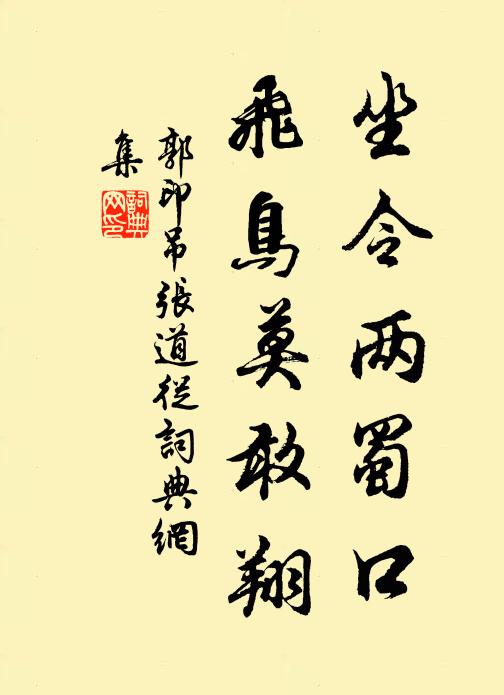 坐令两蜀口
飛鳥莫敢翔
郭印吊張道從詞典網
集
詞典网印